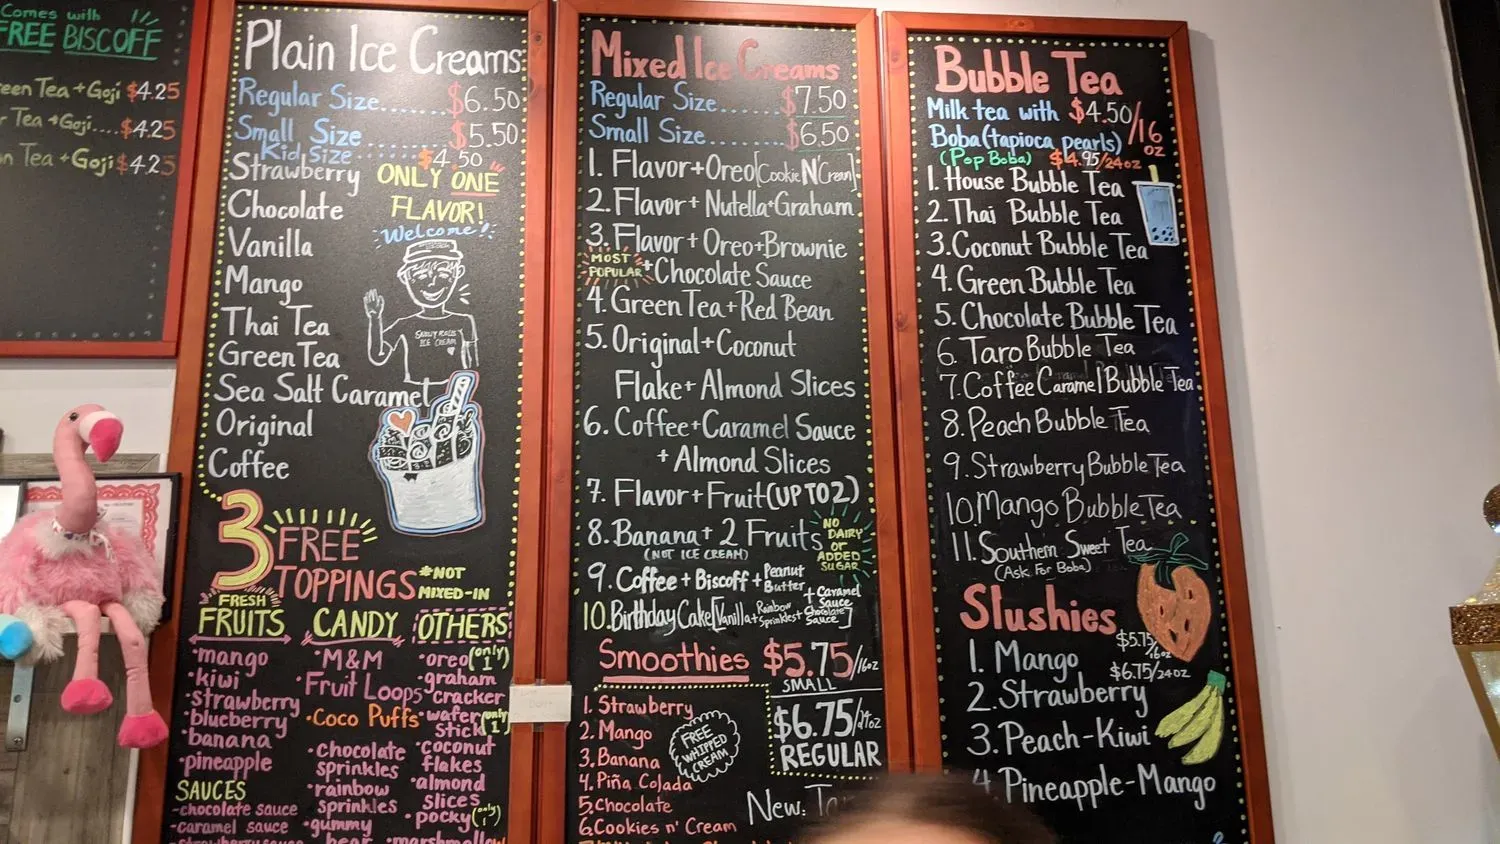 Comes with
FREE BISCOFF
Tea+Goji $4.25
Tea+Goji....$4.25
Tea+Goji $4.25
Plain Ice Creams
Regular Size.......$6.50
Small Size $5.50
Kid Size ... $4.50
Strawberry
Chocolate
Vanilla
Mango
Thai Tea
Green Tea
Sea Salt Caramel
Original
Coffee
ONLY ONE
FLAVOR!
Welcome!
ICE CREAM
3 FREE
TOPPINGS
*NOT
MIXED-IN
FRESH
FRUITS
•mango
•kiwi
•strawberry
•blueberry
•banana
•pineapple
SAUCES
•chocolate sauce
•caramel sauce
CANDY
•M&M
•Fruit Loops
•Coco Puffs
•chocolate
sprinkles
•rainbow
sprinkles
•gummy
bear
OTHERS
•oreo (only 1)
•graham
cracker
•wafer
stick (only 1)
•coconut
flakes
•almond
slices
•pocky (only 1)
•marshmallow
Mixed Ice Creams
Regular Size.......$7.50
Small Size.......$6.50
1. Flavor+Oreo[Cookie N' Cream]
2. Flavor+Nutella+Graham
3. Flavor+Oreo+Brownie
+Chocolate Sauce
MOST
POPULAR
4. Green Tea+Red Bean
5. Original+Coconut
Flake+Almond Slices
6. Coffee+Caramel Sauce
+Almond Slices
7. Flavor+Fruit(UP TO 2)
8. Banana+2 Fruits
(NOT ICE CREAM)
NO
DAIRY
or
ADDED
SUGAR
9. Coffee+Biscoff+Peanut Butter+Caramel Sauce
10. Birthday Cake[Vanilla+Rainbow Sprinkles+Chocolate Sauce]
Smoothies $5.75/16oz
SMALL
$6.75/24oz
REGULAR
1. Strawberry
2. Mango
3. Banana
4. Piña Colada
5. Chocolate
6. Cookies n' Cream
FREE
WHIPPED
CREAM
New:
Bubble Tea
Milk tea with $4.50/16oz
Boba(tapioca pearls)
(Pop Boba) $4.95/24oz
1. House Bubble Tea
2. Thai Bubble Tea
3. Coconut Bubble Tea
4. Green Bubble Tea
5. Chocolate Bubble Tea
6. Taro Bubble Tea
7. Coffee Caramel Bubble Tea
8. Peach Bubble Tea
9. Strawberry Bubble Tea
10. Mango Bubble Tea
11. Southern Sweet Tea
(Ask For Boba)
Slushies
$5.75/16oz
$6.75/24oz
1. Mango
2. Strawberry
3. Peach-Kiwi
4. Pineapple-Mango